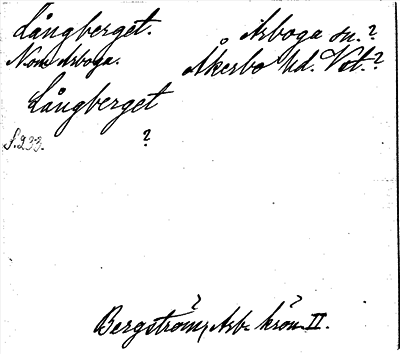 Långberget. Arboga sn.?
Nom Arboga. Åkerbo hd. Vstm.?
Långberget
S.233. ?
Bergström, Arb. krön II.